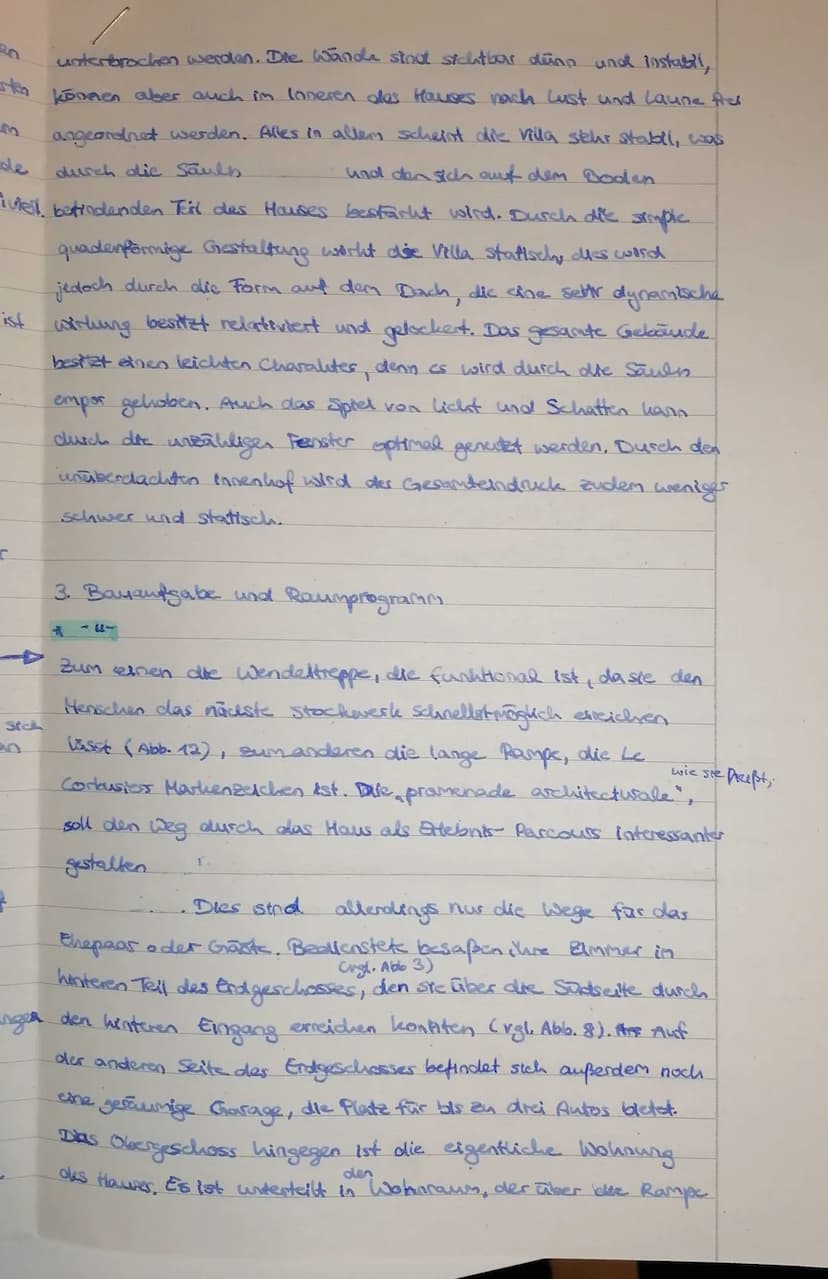 unterbrochen werden. Die Wände sind sichtbar dünn und instabil,
können aber auch im Inneren des Hauses nach Lust und Laune frei
angeordnet werden. Alles in allem scheint die Villa sehr stabil, was
durch die Säulen und den sich auf dem Boden
befindenden Teil des Hauses bestärkt wird. Durch die simple
quaderförmige Gestaltung wirkt die Villa statisch, dies wird
jedoch durch die Form auf dem Dach, die eine sehr dynamische
ist
Wirkung besitzt relativiert und gelockert. Das gesamte Gebäude
besitzt einen leichten Charakter, denn es wird durch die Säulen
empor gehoben. Auch das Spiel von Licht und Schatten kann
durch die unzähligen Fenster optimal genutzt werden. Durch den
unüberdachten Innenhof wird der Gesamteindruck zudem weniger
schwer und statisch.
3. Bauaufgabe und Raumprogramm
* -"-
Zum einen die Wendeltreppe, die funktional ist, da sie den
Menschen das nächste Stockwerk schnellstmöglich erreichen
sich
lässt (Abb. 12), zum anderen die lange Rampe, die Le
wie sie heißt,
Corbusiers Markenzeichen ist. Die „promenade architecturale",
soll den Weg durch das Haus als Erlebnis-Parcours interessanter
gestalten
. Dies sind allerdings nur die Wege für das
Ehepaar oder Gäste. Bedienstete besaßen ihre Zimmer im
(vgl. Abb 3)
hinteren Teil des Erdgeschosses, den sie über die Südseite durch
den hinteren Eingang erreichen konnten (vgl. Abb. 8). Auf
der anderen Seite des Erdgeschosses befindet sich außerdem noch
eine geräumige Garage, die Platz für bis zu drei Autos bietet.
Das Obergeschoss hingegen ist die eigentliche Wohnung
den
des Hauses. Es ist unterteilt in Wohnraum, der über die Rampe